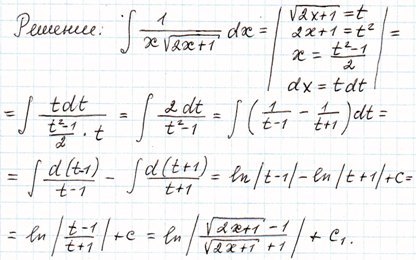 Решение: ∫ 1/(x√(2x+1)) dx = | √(2x+1) = t
2x+1 = t²
x = (t²-1)/2
dx = t dt | =
= ∫ t dt/((t²-1)/2 · t) = ∫ 2dt/(t²-1) = ∫ (1/(t-1) - 1/(t+1)) dt =
= ∫ d(t-1)/(t-1) - ∫ d(t+1)/(t+1) = ln|t-1| - ln|t+1| + c =
= ln|(t-1)/(t+1)| + c = ln|(√(2x+1) - 1)/(√(2x+1) + 1)| + c₁.